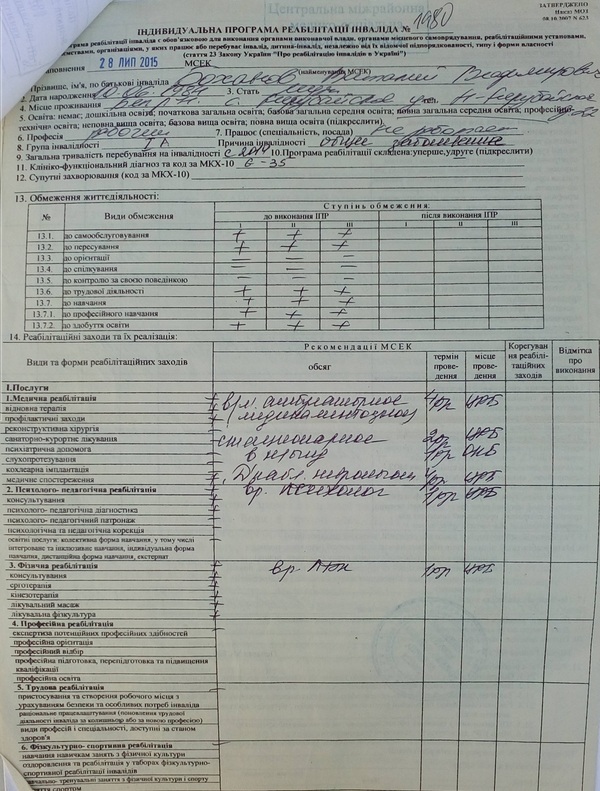 ЗАТВЕРДЖЕНО
Наказ МОЗ
08.10.2007 N 623
Центральна міжрайонна
ІНДИВИДУАЛЬНА ПРОГРАМА РЕАБІЛІТАЦІЇ ІНВАЛІДА № 1980
рограма реабілітації інваліда є обов'язковою для виконання органами виконавчої влади, органами місцевого самоврядування, реабілітаційними установами,
ємствами, організаціями, у яких працює або перебуває інвалід, дитина-інвалід, незалежно від їх відомчої підпорядкованості, типу і форми власності
(стаття 23 Закону України "Про реабілітацію інвалідів в Україні")
аповнення 28 ЛИП 2015 МСЕК
(найменування МСЕК)
Прізвище, ім'я, по батькові інваліда Владимирович
2. Дата народження 1984 3. Стать муж
4. Місце проживання
5. Освіта: немає; дошкільна освіта; початкова загальна освіта; базова загальна середня освіта; повна загальна середня освіта; професійно-
технічна освіта; неповна вища освіта; базова вища освіта, повна вища освіта (підкреслити).
6. Професія рабочий 7. Працює (спеціальність, посада) не работает
8. Група інвалідності I А Причина інвалідності общее заболевание
9. Загальна тривалість перебування на інвалідності с 2014 10.Програма реабілітації складена:уперше,удруге (підкреслити)
11. Клініко-функціональний діагноз та код за МКХ-10 G-35
12. Супутні захворювання (код за МКХ-10)
13. Обмеження життєдіяльності:
№ Види обмеження Ступінь обмеження:
до виконання ІПР після виконання ІПР
I II III I II III
13.1. до самообслуговування + + +
13.2. до пересування + + +
13.3. до орієнтації – – –
13.4. до спілкування – – –
13.5. до контролю за своєю поведінкою – – –
13.6. до трудової діяльності + + +
13.7. до навчання + + +
13.7.1. до професійного навчання + + +
13.7.2. до здобуття освіти + + +
14. Реабілітаційні заходи та їх реалізація:
Види та форми реабілітаційних заходів Рекомендації МСЕК Корегуван ня реабілі- таційних заходів Відмітка про виконання
обсяг термін прове- дення місце прове- дення
І.Послуги
1.Медична реабілітація амбулаторное
відновна терапія медикаментозное
профілактичні заходи
реконструктивна хірургія
санаторно-курортне лікування стационарное
психіатрична допомога
слухопротезування
кохлеарна імплантація
медичне спостереження
2. Психолого- педагогічна реабілітація вр. психолог
консультування
психолого- педагогічна діагностика
психолого- педагогічний патронаж
психологічна та педагогічна корекція
освітні послуги: колективна форма навчання, у тому числі
інтегроване та інклюзивне навчання, індивідуальна форма
навчання, дистанційна форма навчання, екстернат
3. Фізична реабілітація вр.
консультування
ерготерапія
кінезотерапія
лікувальний масаж
лікувальна фізкультура
4. Професійна реабілітація
експертиза потенційних професійних здібностей
професійна орієнтація
професійний відбір
професійна підготовка, перепідготовка та підвищення
кваліфікації
професійна освіта
5. Трудова реабілітація
пристосування та створення робочого місця з
урахуванням безпеки та особливих потреб інваліда
раціональне працевлаштування (поновлення трудової
діяльності інваліда за колишньою або за новою професією)
види професій і спеціальності, доступні за станом
здоров'я
6. Фізкультурно- спортивна реабілітація
навчання навичкам занять з фізичної культури
оздоровлення та реабілітація у таборах фізкультурно-
спортивної реабілітації інвалідів
навчально- тренувальні заняття з фізичної культури і спорту
аняття спортом